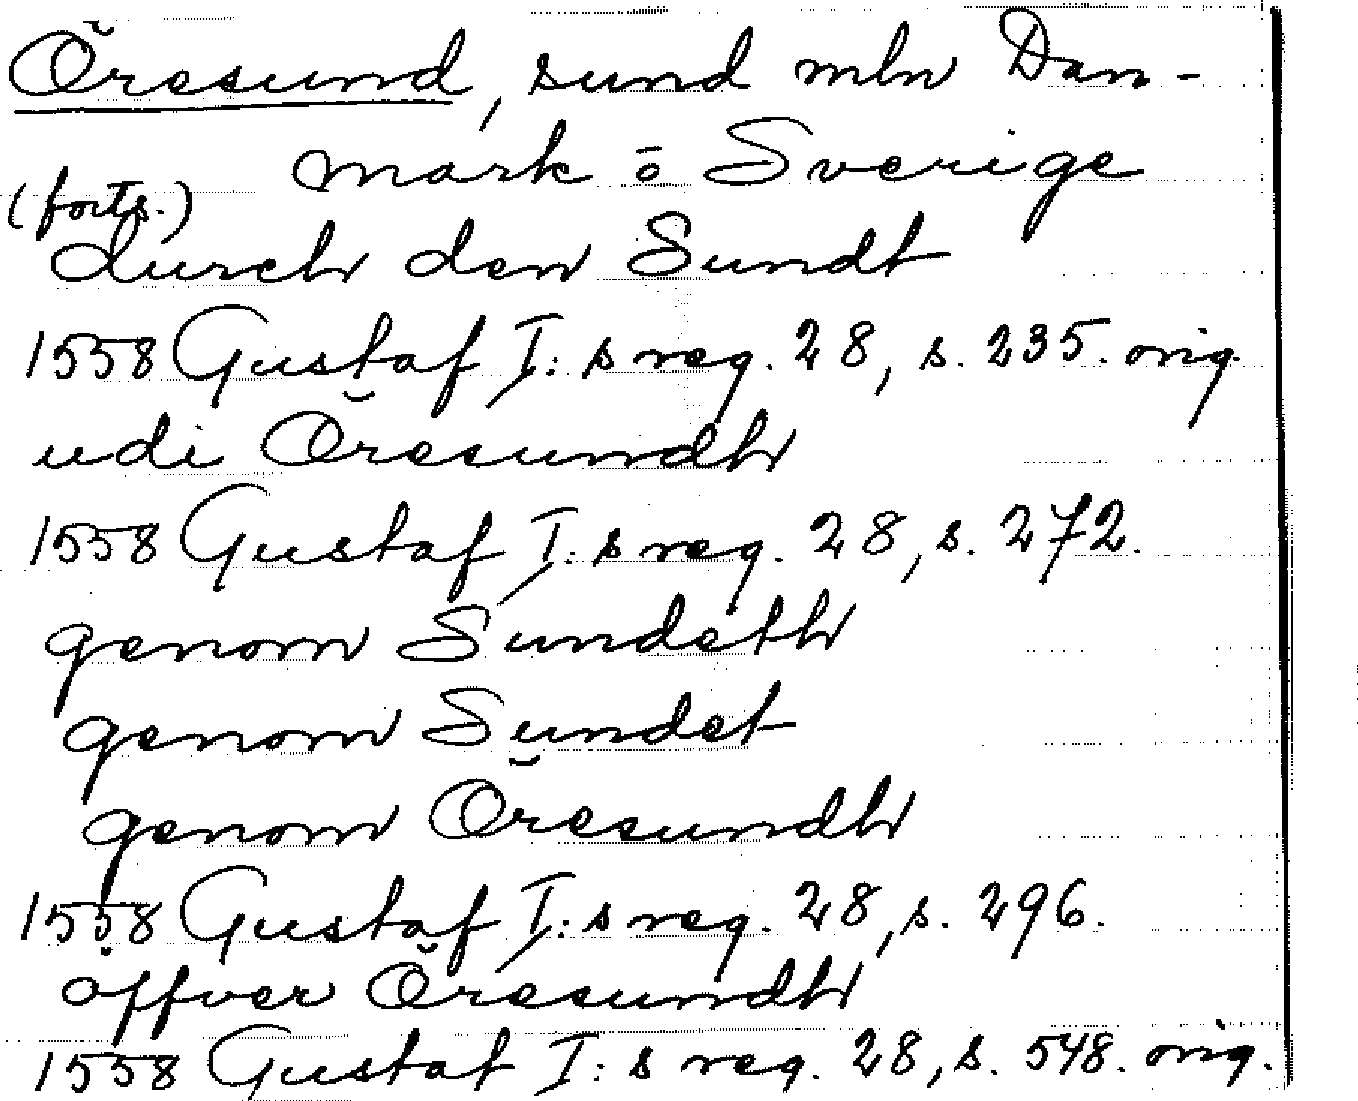 Öresund, sund mln Dan-
mark ō Sverige
(forts.)
durch den Sundt
1558 Gustaf I:s reg. 28, s. 235. orig.
udi Öresundh
1558 Gustaf I:s reg. 28, s. 272.
genom Sundeth
genom Sundet
genom Öresundh
1558 Gustaf I:s reg. 28, s. 296.
öffver Öresundh
1558 Gustaf I:s reg. 28, s. 548. orig.